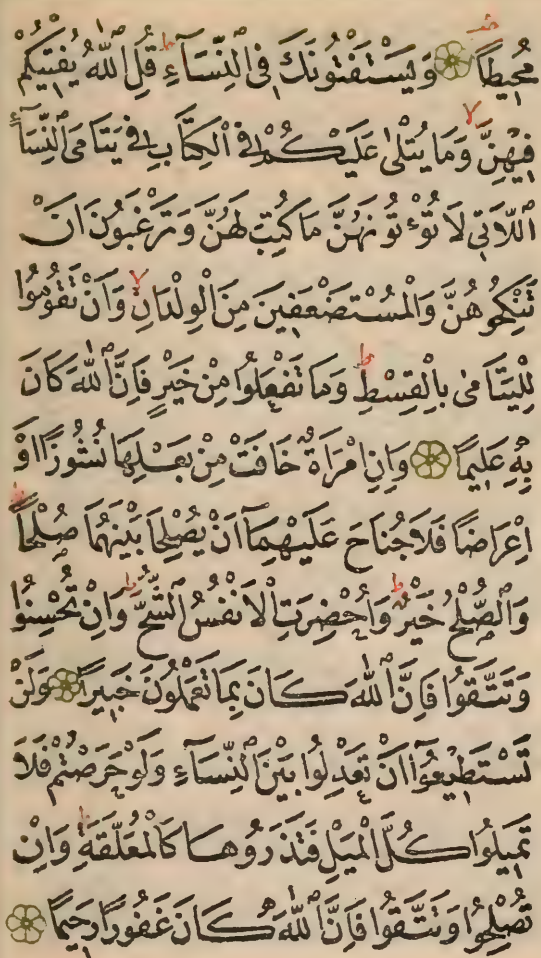 مُحِيطًا وَيَسْتَفْتُونَكَ فِي النِّسَاءِ قُلِ اللّٰهُ يُفْتِيكُمْ
فِيهِنَّ وَمَا يُتْلٰى عَلَيْكُمْ فِي الْكِتَابِ فِي يَتَامَى النِّسَاءِ
اللَّاتِي لَا تُؤْتُونَهُنَّ مَا كُتِبَ لَهُنَّ وَتَرْغَبُونَ اَنْ
تَنْكِحُوهُنَّ وَالْمُسْتَضْعَفِينَ مِنَ الْوِلْدَانِ وَاَنْ تَقُومُوا
لِلْيَتَامٰى بِالْقِسْطِ وَمَا تَفْعَلُوا مِنْ خَيْرٍ فَاِنَّ اللّٰهَ كَانَ
بِهِ عَلِيمًا وَاِنِ امْرَاَةٌ خَافَتْ مِنْ بَعْلِهَا نُشُوزًا اَوْ
اِعْرَاضًا فَلَا جُنَاحَ عَلَيْهِمَا اَنْ يُصْلِحَا بَيْنَهُمَا صُلْحًا
وَالصُّلْحُ خَيْرٌ وَاُحْضِرَتِ الْاَنْفُسُ الشُّحَّ وَاِنْ تُحْسِنُوا
وَتَتَّقُوا فَاِنَّ اللّٰهَ كَانَ بِمَا تَعْمَلُونَ خَبِيرًا وَلَنْ
تَسْتَطِيعُوا اَنْ تَعْدِلُوا بَيْنَ النِّسَاءِ وَلَوْ حَرَصْتُمْ فَلَا
تَمِيلُوا كُلَّ الْمَيْلِ فَتَذَرُوهَا كَالْمُعَلَّقَةِ وَاِنْ
تُصْلِحُوا وَتَتَّقُوا فَاِنَّ اللّٰهَ كَانَ غَفُورًا رَحِيمًا